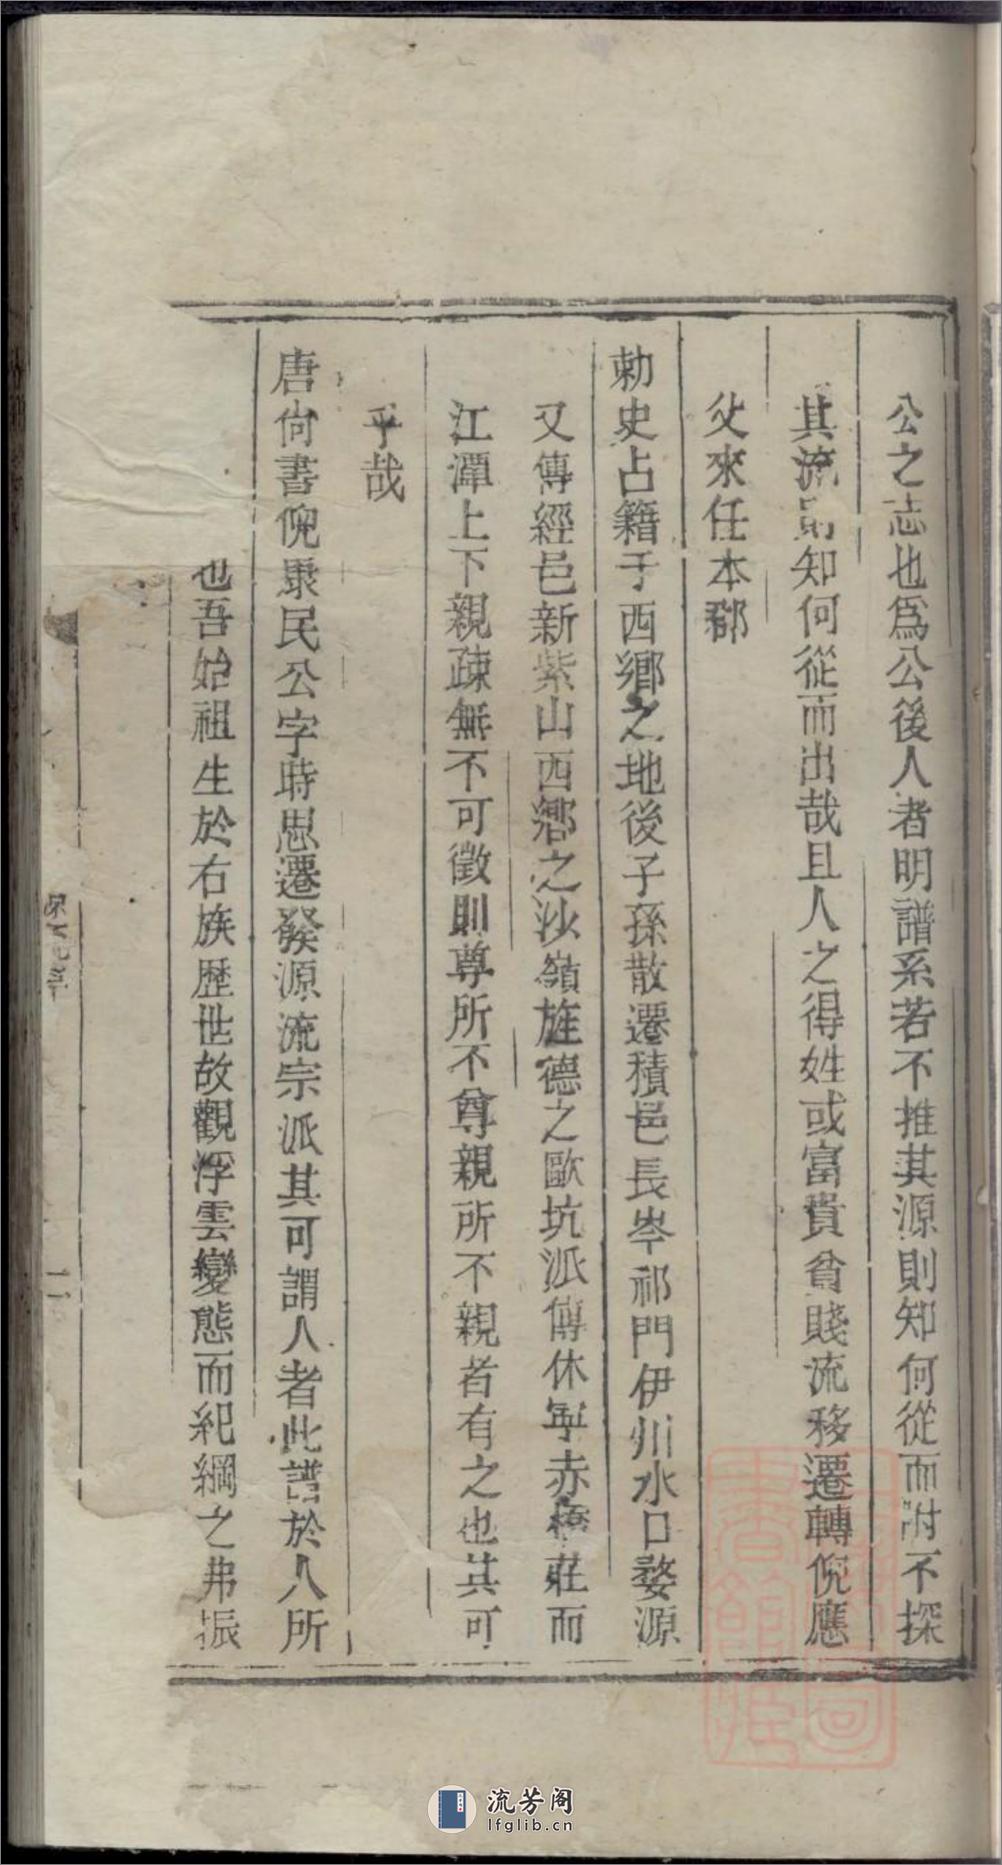 公之志也爲公後人者明譜系若不推其源則知何從而附不探
其流則知何從而出哉且人之得姓或富貴貧賤流移遷轉倪應
父來任本郡
勅史占籍于西鄉之地後子孫散遷積邑長岑祁門伊川水口婺源
又傳經邑新紫山西鄉之沙嶺旌德之歐坑派傳休寧赤橋莊而
江潭上下親疎無不可徵則尊所不尊親所不親者有之也其可
乎哉
唐尙書倪康民公字時思遷發源流宗派其可謂人者此譜於人所
也吾始祖生於右族歷世故觀浮雲變態而紀綱之弗振
二
流芳阁
lfglib.cn